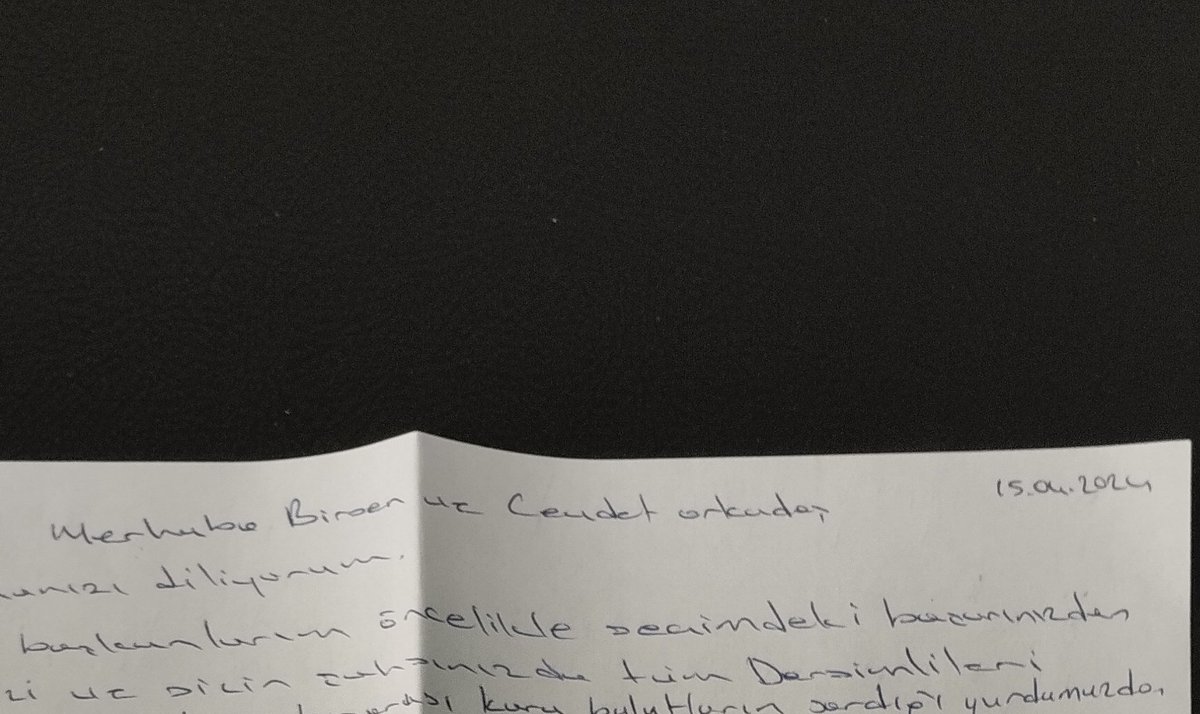 15.04.2024
Merhaba Birsen ve Cevdet arkadaş
diliyorum.
başkanlarım öncelikle seçimdeki başarınızdan
ve sizin şahsınızda tüm Dersimlileri
kara bulutların sardığı yurdumuzda,